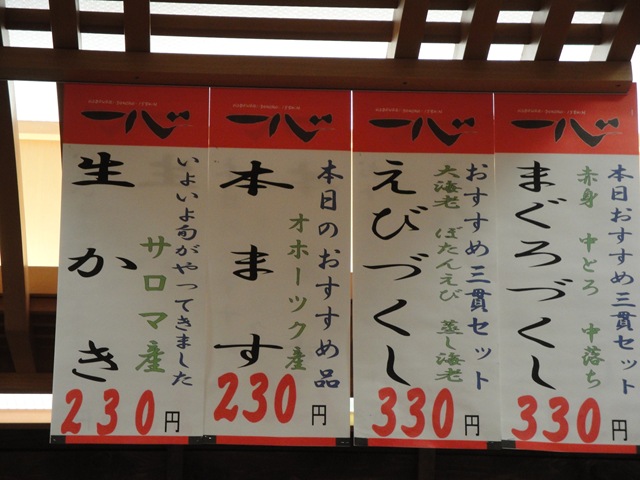 一心
本日おすすめ三貫セット
赤身 中とろ 中落ち
まぐろづくし
330円
一心
おすすめ三貫セット
大海老 ぼたんえび 蒸し海老
えびづくし
330円
一心
本日のおすすめ品
オホーツク産
本ます
230円
一心
いよいよ旬がやってきました
サロマ産
生かき
230円